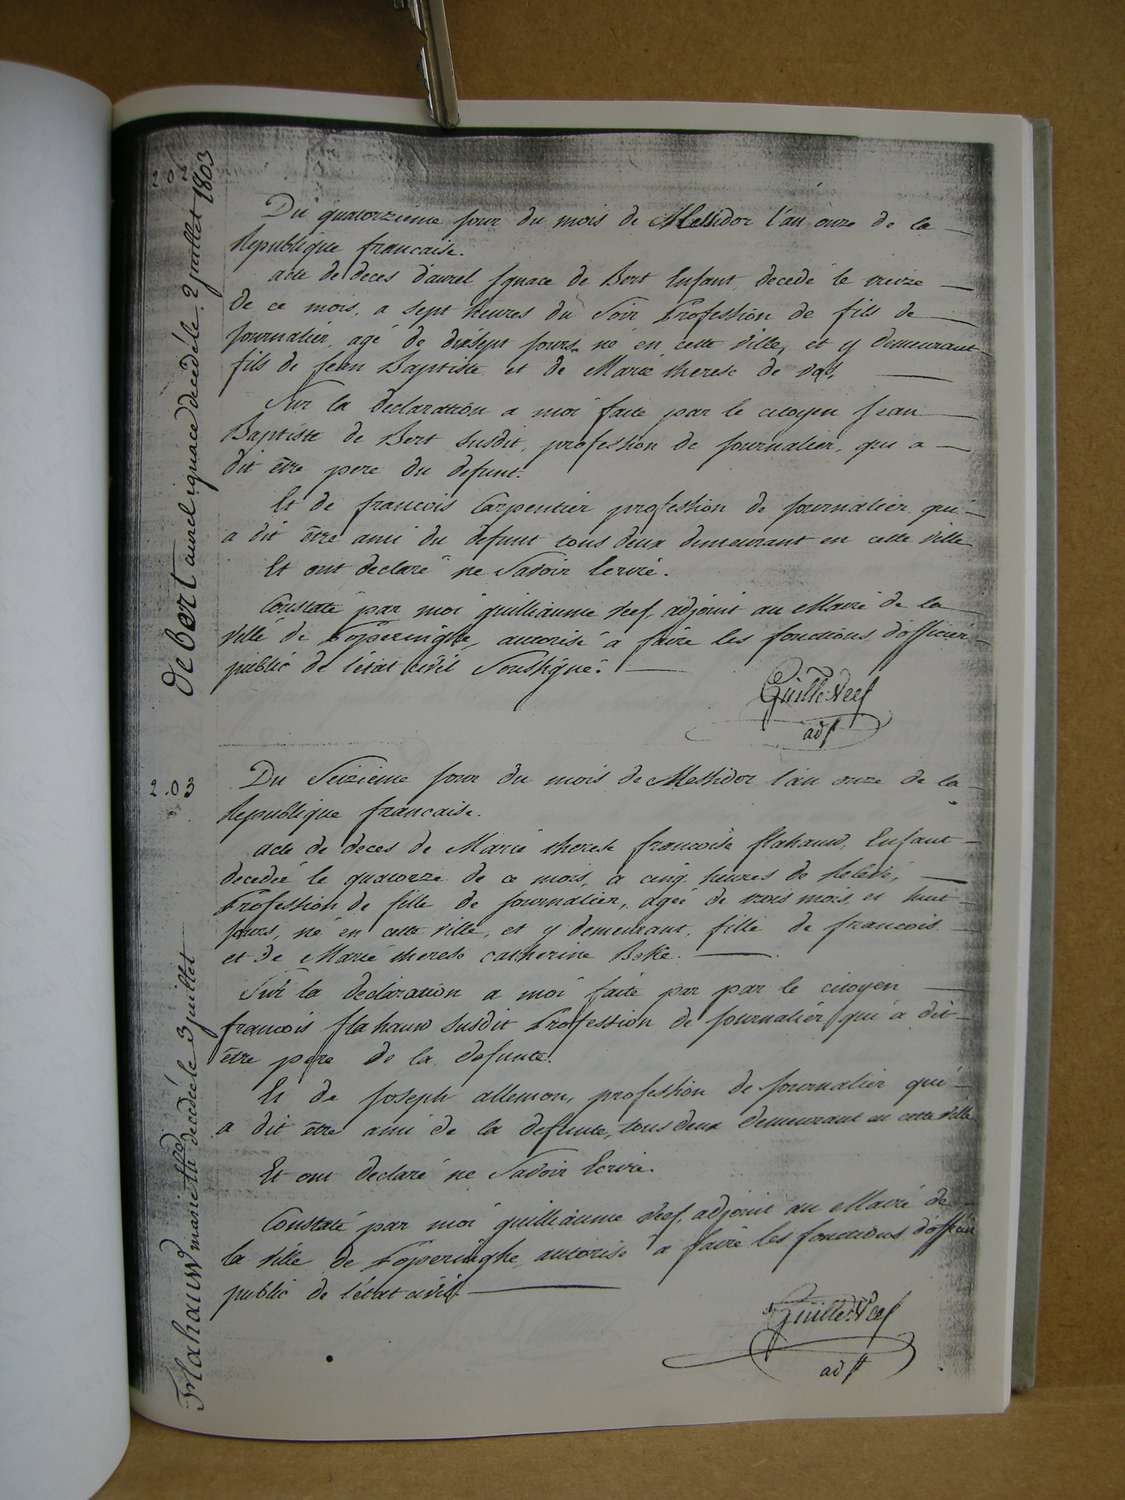 202
De Bert aurel ignace decedé le 2 juillet 1803
Du quatorzieme jour du mois de Messidor l'an onze de la
Republique francaise.
acte de deces d'aurel Ignace de Bert Enfant, decedé le treize
de ce mois, a sept heures du Soir Profession de fils de
journalier, agé de dixsept jours, né en cette ville, et y demeurant
fils de jean Baptiste et de Marie therese de
Sur la declaration a moi faite par le citoyen jean
Baptiste de Bert susdit, profession de journalier, qui a
dit être pere du defunt.
Et de francois Carpentier profession de journalier, qui
a dit être ami du defunt tous deux demeurant en cette ville
Et ont declaré ne Savoir Ecrire.
Constaté par moi guilliaume Neef, adjoint au Maire de la
ville de Poperinghe, autorisé a faire les fonctions d'officier
public de l'état civil Soussigné.
Guille Neef
adjt
203
Flahauw marie th. decedé le 3 juillet
Du Seizieme jour du mois de Messidor l'an onze de la
Republique francaise.
acte de deces de Marie therese francoise flahauw, Enfant
decedée le quatorze de ce mois, a cinq heures de
Profession de fille de journalier, agée de trois mois et huit
jours, né en cette ville, et y demeurant, fille de francois
et de Marie therese catherine Beke.
Sur la declaration a moi faite par par le citoyen
francois flahauw susdit Profession de journalier qui a dit
être pere de la defunte.
Et de joseph allemon, profession de journalier qui
a dit être ami de la defunte, tous deux demeurant en cette ville
Et ont declaré ne Savoir Ecrire.
Constaté par moi guilliaume Neef, adjoint au Maire de
la ville de Poperinghe, autorisé a faire les fonctions d'officier
public de l'état civil
Guille Neef
adjt